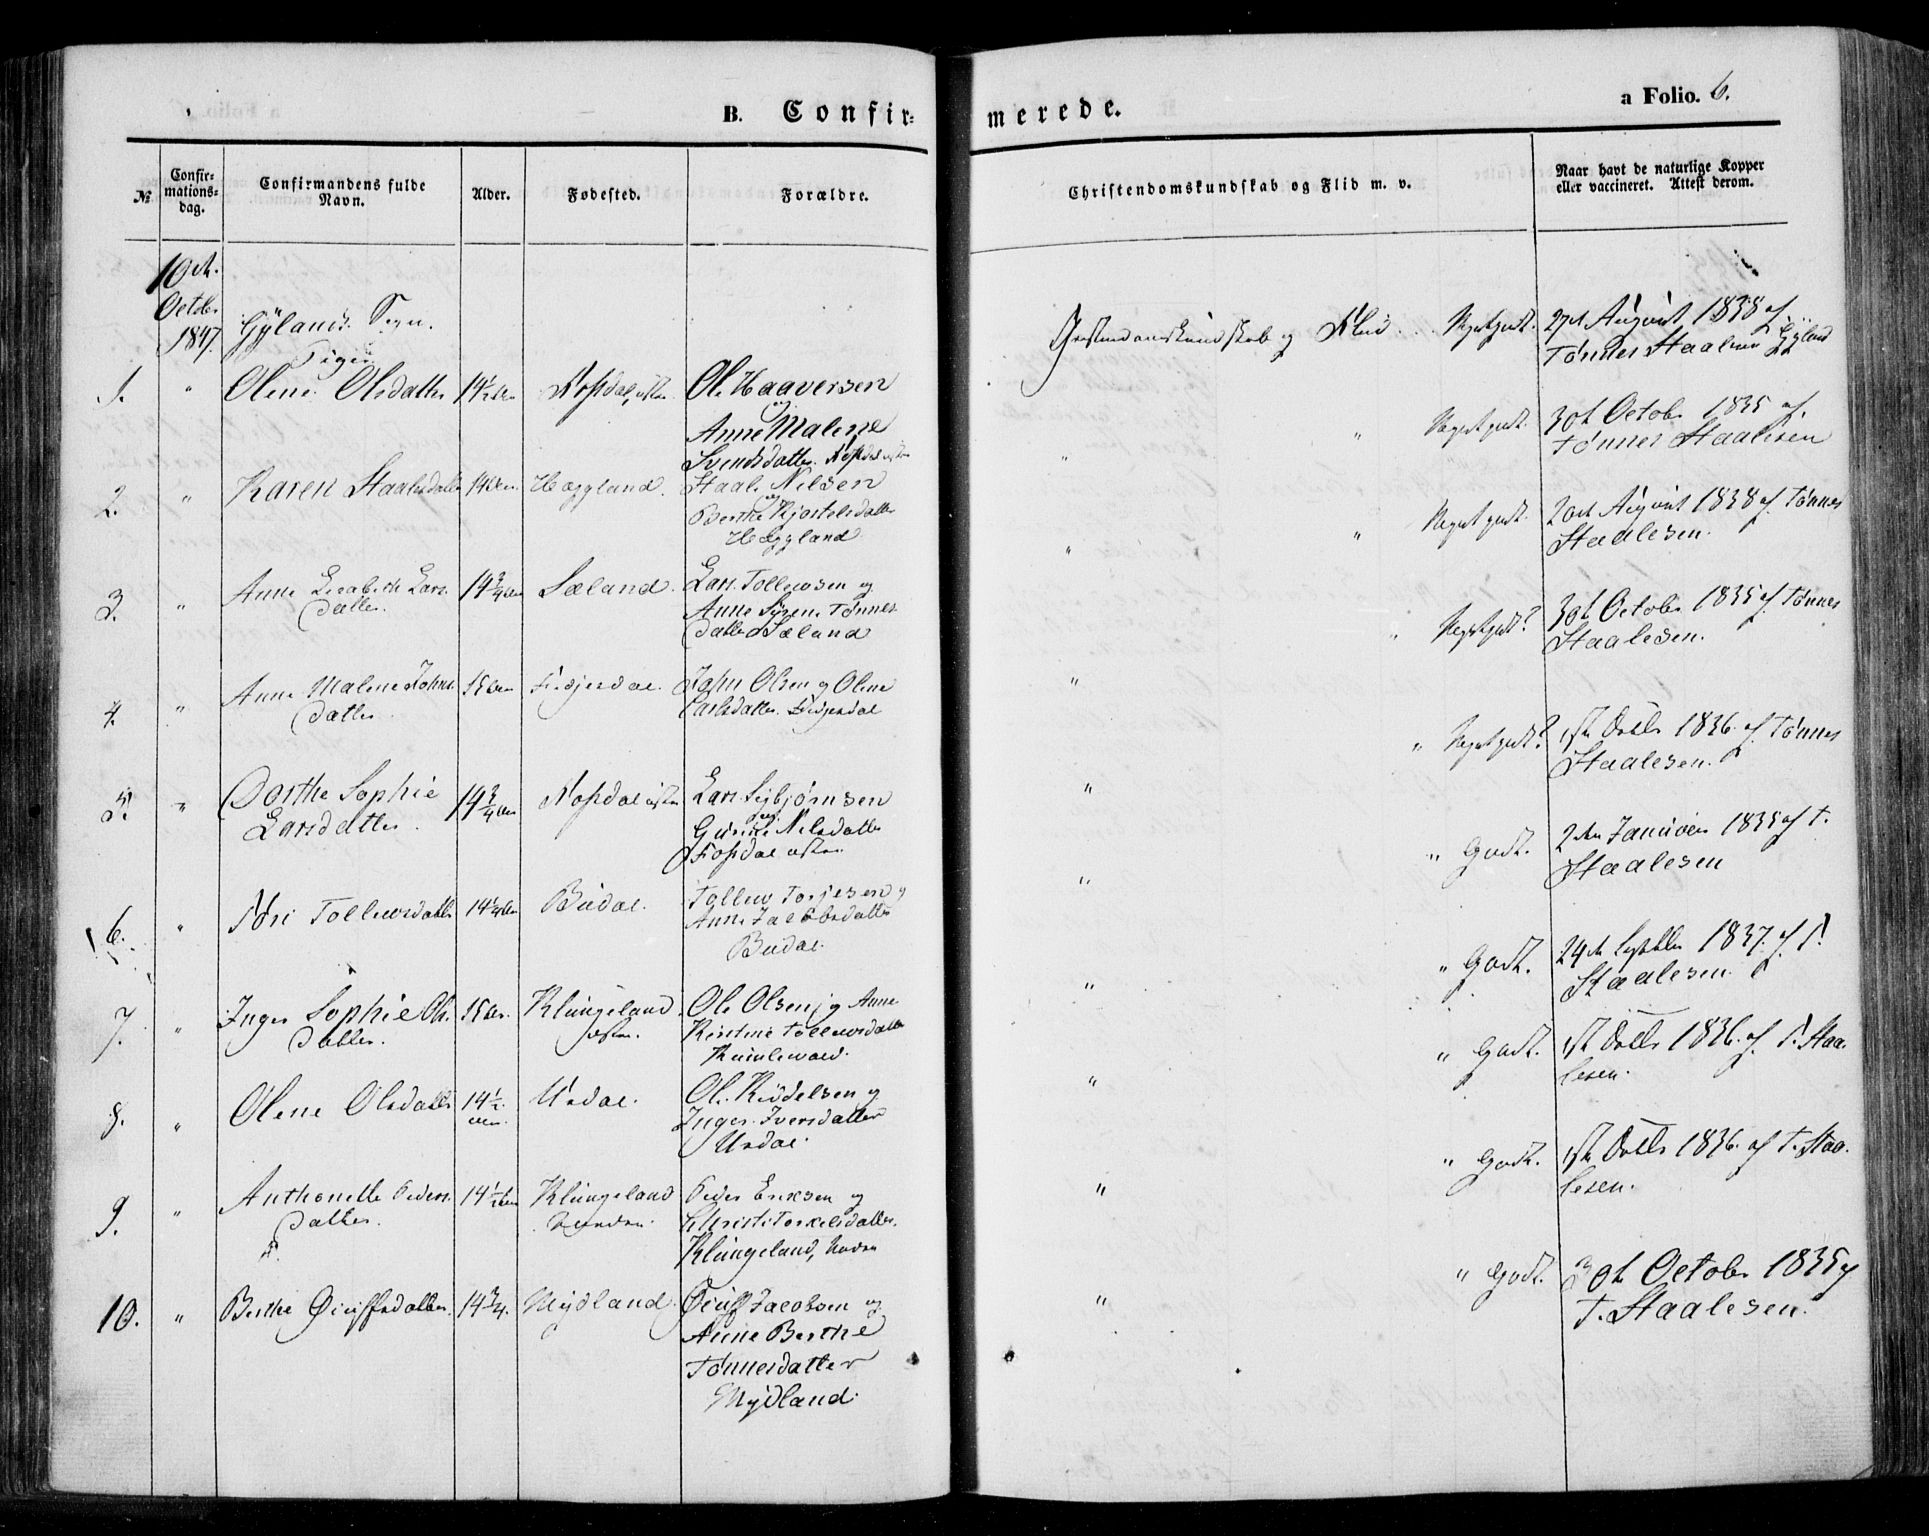 B. Confir-
merede.
a Folio. 6.
№
Confir-
mations-
dag.
Confirmandens fulde
Navn.
Alder.
Fødested.
Forældre.
Christendomskundskab og Flid m. v.
Naar havt de naturlige Kopper
eller vaccineret. Attest derom.
10de
October
1847.
Gylands Sogn.
Piger
1. " Olene Olsdatter 14½ Østre
Ole Haaversen
og
Anne Malene
Svendsdatter
Meget godt. 27de August 1838 af
Tønnes Staalesen Gyland
2. " Karen Staalesdatter 14 Heggland.
Staale Nielsen
og
Berthe Kjostelsdatter
Heggland
" " Meget godt. 30te Octobr 1835 af
Tønnes Staalesen
3. " Anne Lisabeth Lars
datter. 14¾ Sæland
Lars Tollevsen og
Anne Tønnes
datter Sæland
" " Meget godt. 20de August 1838 af Tønnes
Staalesen.
4. " Anne Malene Johns
datter. 15 Fidjesdal.
John Olsen og Olene
Carlsdatter. Fidjesdal
" " Meget godt? 30te Octobr 1835 af Tønnes
Staalesen.
5. " Dorthe Sophie
Larsdatter. 14¾
Lars Sigbjørnsen
og
Gunild Nilsdatter
" " Meget godt? 1ste Octbr 1836 af Tønnes
Staalesen.
6. " Siri Tollevsdatter 14¼ Budal.
Tollew Torjesen og
Anne Jacobsdatter
Budal.
" " Godt. 2den Januar 1835 af T.
Staalesen
7. " Inger Sophie Ols
datter. 15 Klungeland
østre
Ole Olsen og Anne
Kistine Tollevsdatter
" " Godt. 24de Septbr 1837 af T.
Staalesen.
8. " Olene Olsdatter 14½ Urdal.
Ole Kiddelsen og
Inger Iversdatter
Urdal.
" " Godt. 1ste Octbr 1836. af T. Staa-
lesen.
9. " Anthonette Peders
datter. 14½ Klungeland
Peder Eriksen og
Christi Torkelsdatter.
Klungeland,
" " Godt. 1ste Octbr 1836. af T. Staa-
lesen.
10. " Berthe Øiulfsdatter. 14¾. Mydland
Øiulf Jacobsen og
Anne Berthe
Tønnesdatter
Mydland.
" " Godt. 30te Octobr 1835 af
T. Staalesen.